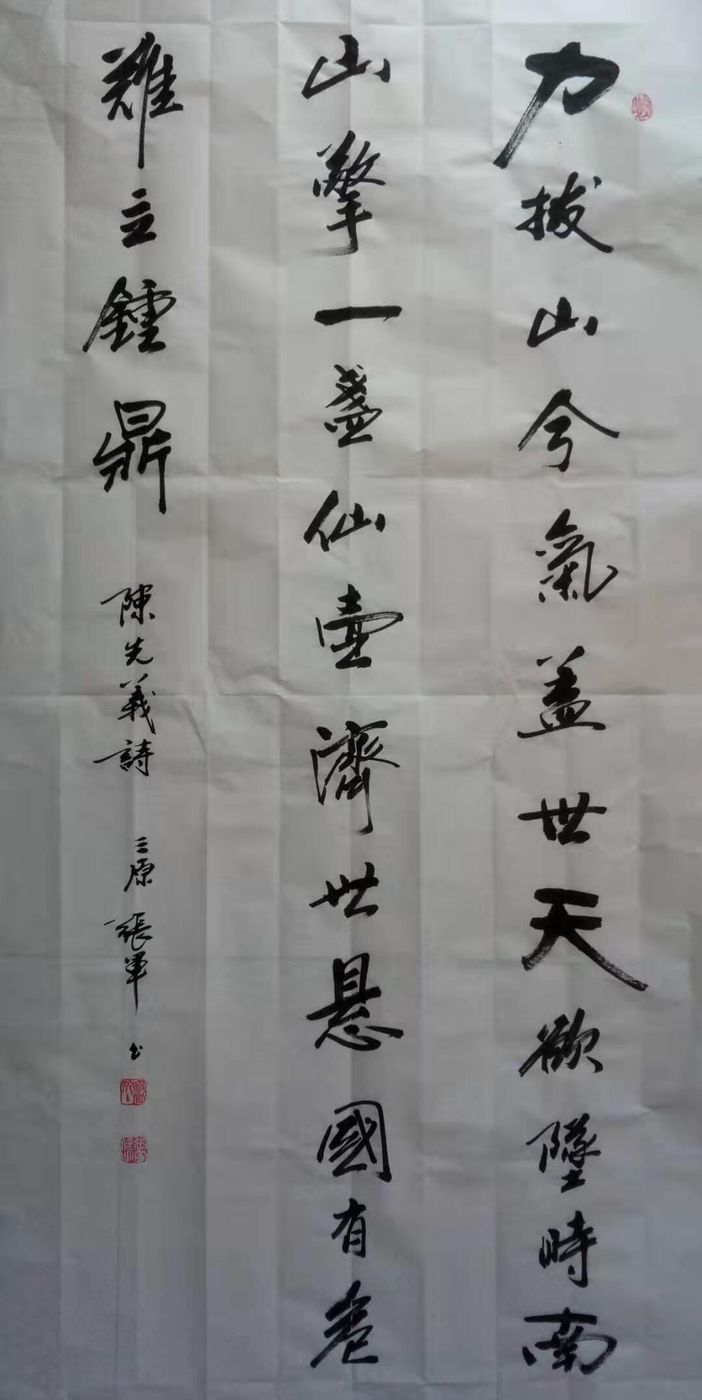 力拔山兮氣盖世天欲墜時南
山擎一盞仙壺濟世懸國有危
難主鍾鼎
陳先義詩
三原張軍书